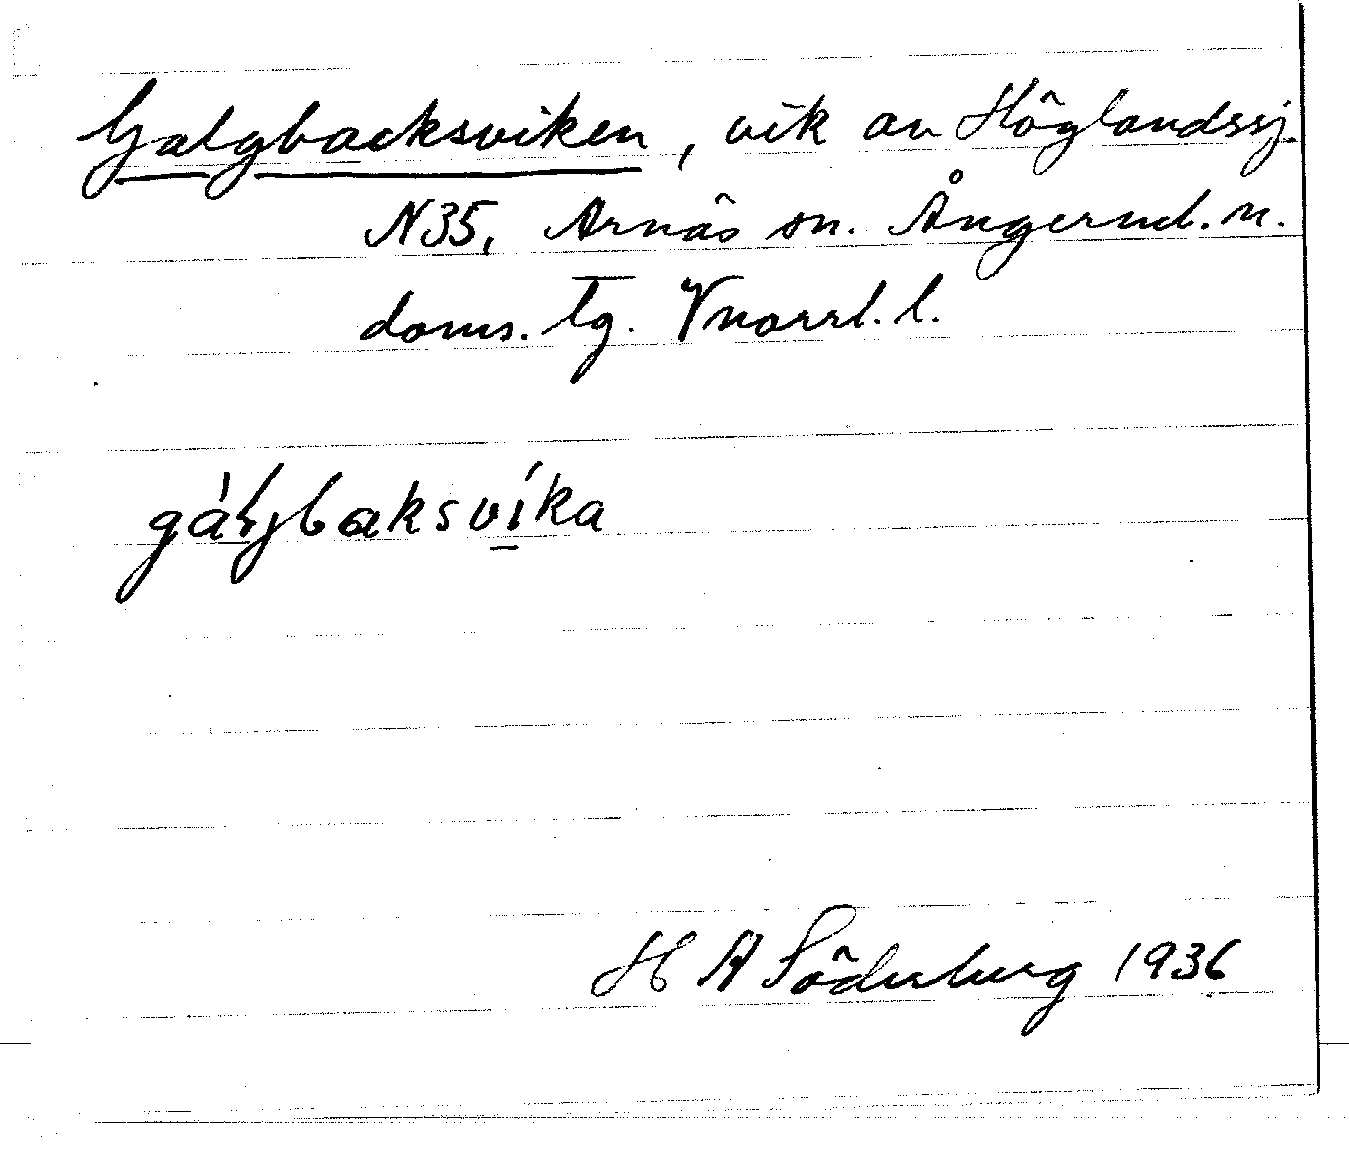 Galgbacksviken, vik av Höglandssj.
N35, Arnäs sn. Ångerml. n.
doms. tg. Vnorrl. l.
gálgbaksvíka
H A Söderberg 1936